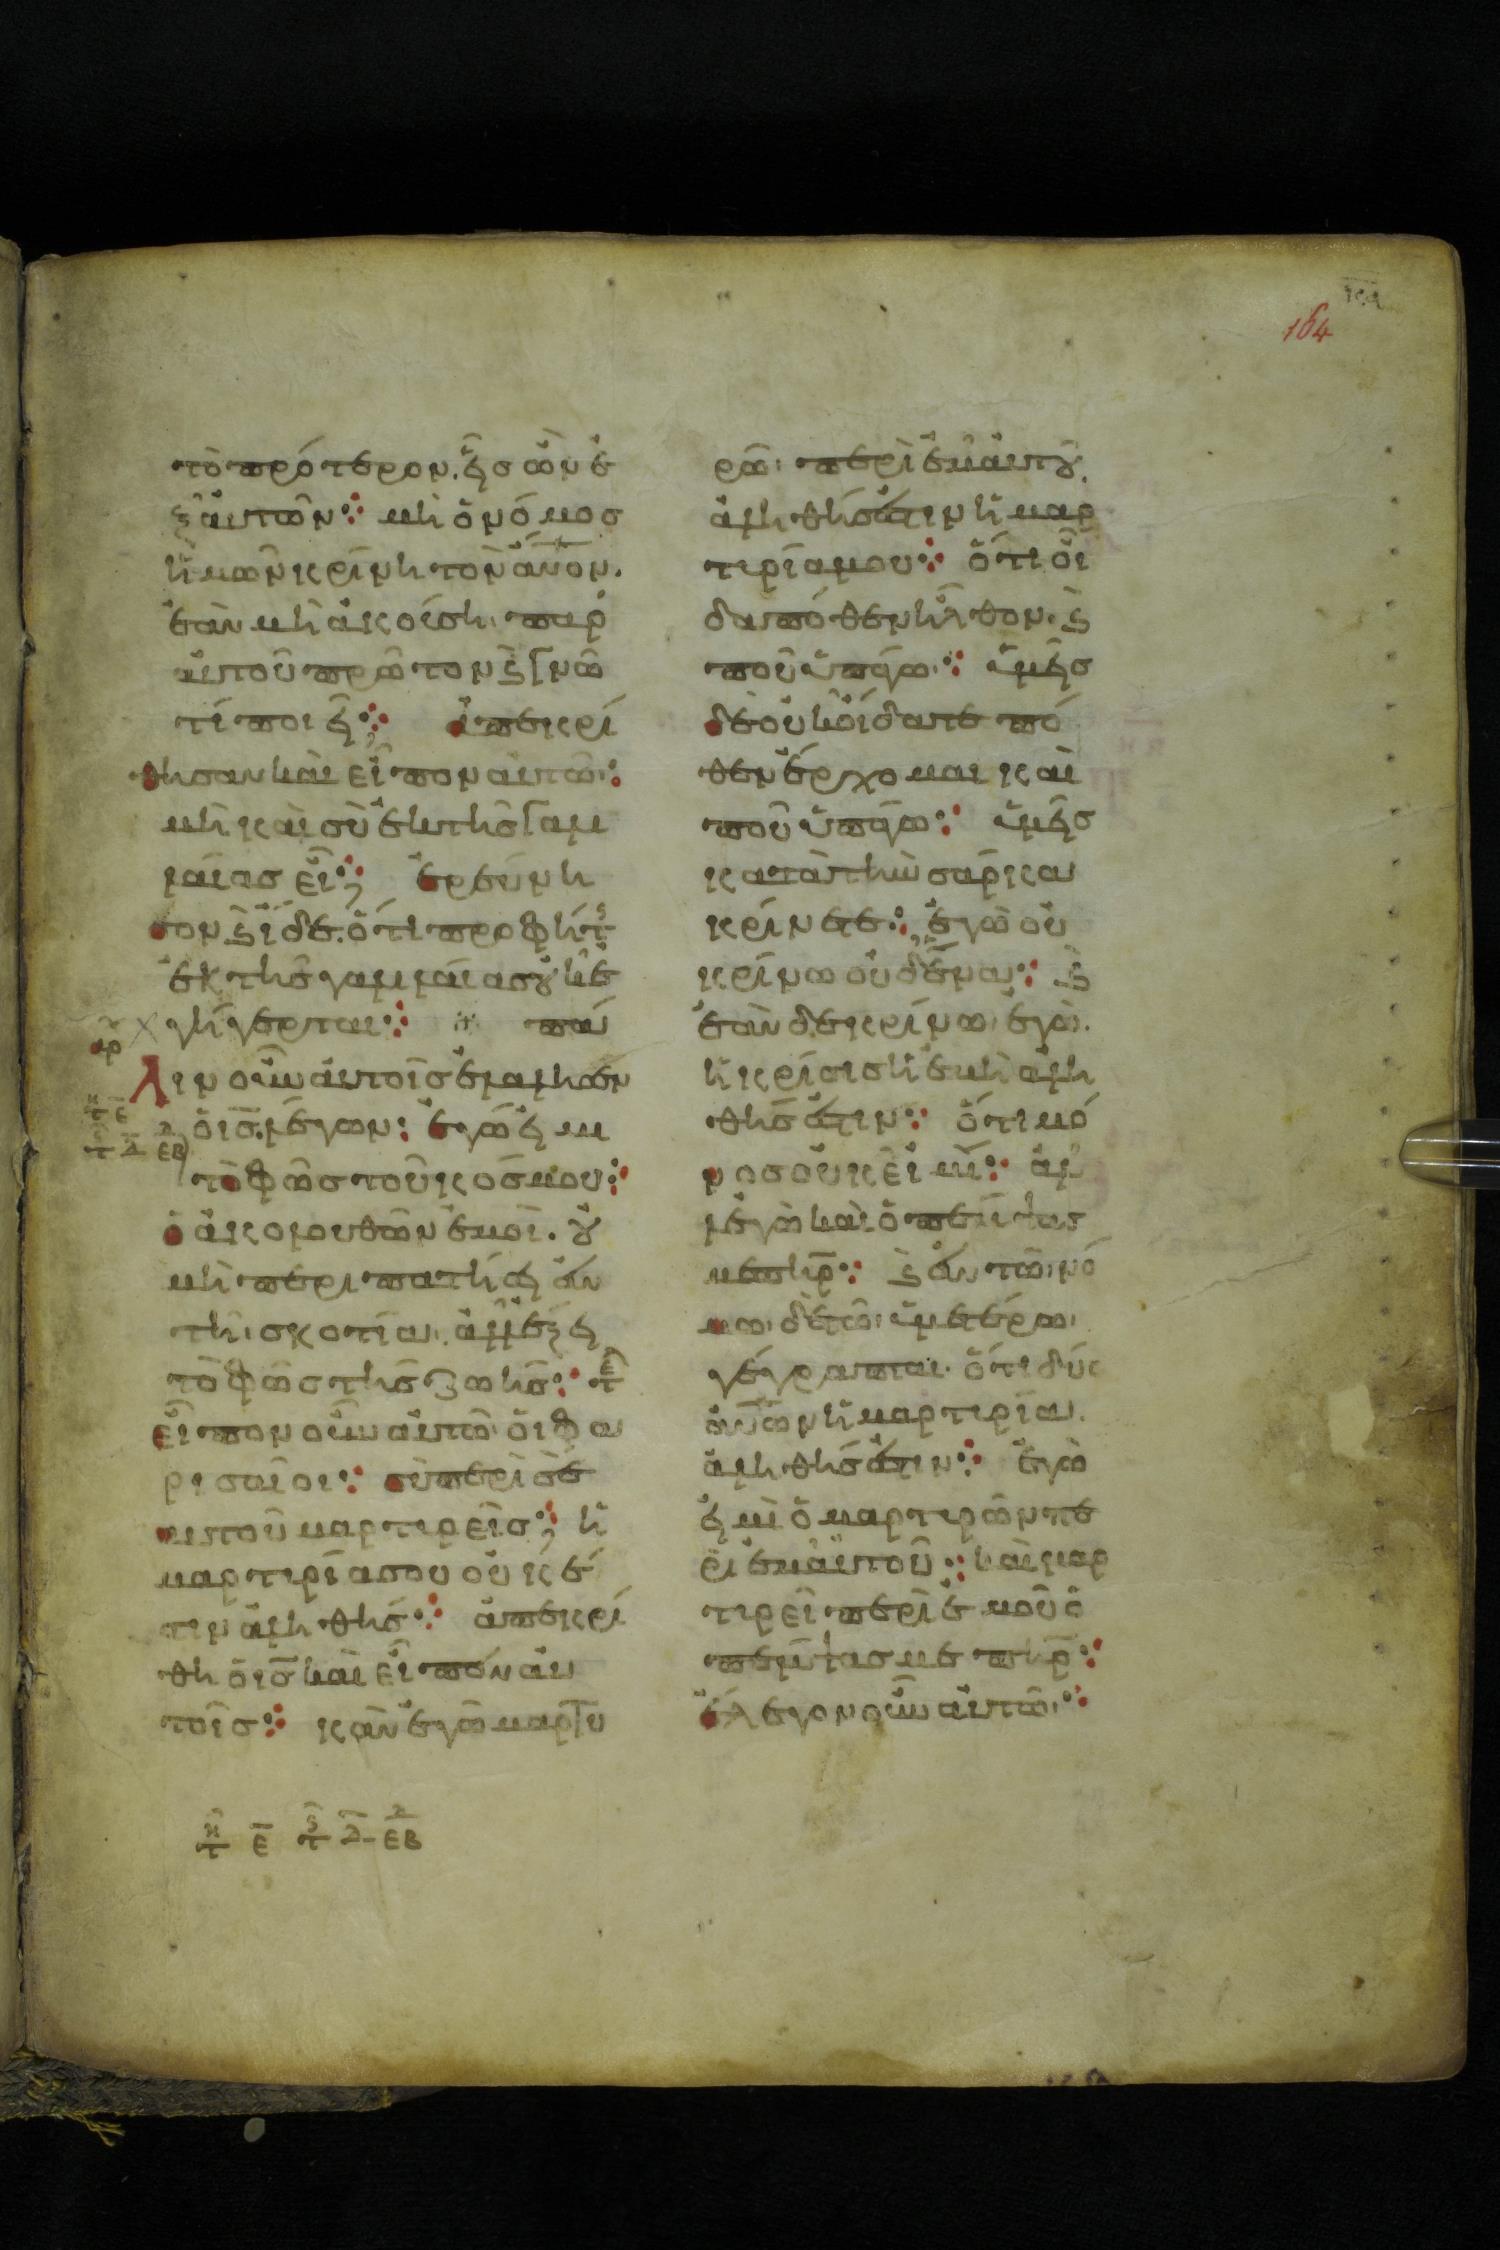 164
τὸ πρότερον. εἷς ὢν ἐ
ξ αὐτῶν: μὴ ὁ νόμος
ἡμῶν κρίνη τὸν ἄνον.
ἐὰν μὴ ἀκούση παρ
αὐτοῦ πρῶτον ϗ γνῶ
τί ποιεῖ; ἀπεκρί
θησαν καὶ εἶπον αὐτῶ:
μὴ καὶ σὺ ἐκ τῆς γαλι
λαίας εἶ; ἐρεύνη
σον ϗ ἴδε. ὅτι προφήτς
ἐκ τῆς γαλιλαίας οὐκ ἐ
γήγερται: πάλ
Λιν οὖν αὐτοῖς ἐλάλησεν
ὁ ις. λέγων: ἐγώ εἰμι
τὸ φῶς τοῦ κόσμου:
ὁ ἀκολουθῶν ἐμοί. οὐ
μὴ περιπατήσει ἐν
τῆ σκοτία. ἀλλ ἕξει
τὸ φῶς τῆς ζωῆς:
εἶπον οὖν αὐτῶ οἱ φα
ρισαῖοι: σὺ περὶ σε
αυτοῦ μαρτυρεῖς; ἡ
μαρτυρία σου οὐκ ἔσ
τιν ἀληθής: ἀπεκρί
θη ὁ ις καὶ εἶπεν αὐ
τοῖς: κἂν ἐγὼ μαρτυ
ρῶ περὶ ἐμαυτοῦ.
ἀληθής ἐστιν ἡ μαρ
τυρία μου: ὅτι οἶ
δα πόθεν ἦλθον. ϗ
ποῦ ὑπάγω: ὑμεῖς
δὲ οὐκ οἴδατε πό
θεν ἔρχομαι καὶ
ποῦ ὑπάγω: ὑμεῖς
κατὰ τὴν σάρκα
κρίνετε: ἐγὼ οὐ
κρίνω οὐδένα: ϗ
ἐὰν δὲ κρίνω ἐγώ.
ἡ κρίσις ἡ ἐμὴ ἀλη
θής ἐστιν: ὅτι μό
νος οὐκ εἰμί: ἀλλ
λ ἐγὼ καὶ ὁ πέμψας
με πηρ: ϗ ἐν τῶ νό
μω δὲ τῶ ὑμετέρω
γέγραπται. ὅτι δύο
ἀνων ἡ μαρτυρία.
ἀληθής ἐστιν: ἐγώ
εἰμι ὁ μαρτυρῶν πε
ρὶ ἐμαυτοῦ: καὶ μαρ
τυρεῖ περὶ ἐμοῦ ὁ
πέμψας με πηρ:
ἔλεγον οὖν αὐτῶ: